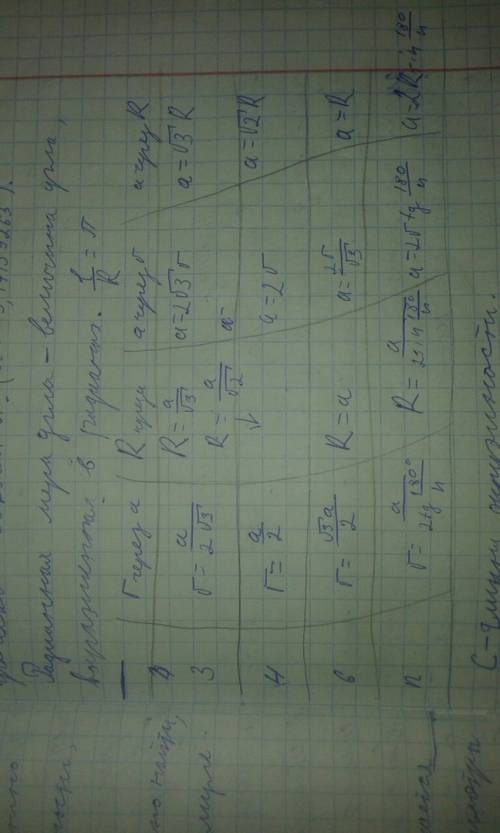 3,14159263).
Радианная мера угла – величина угла,
выраженная в радианах. l/R = π
r через a | R через a | a через r | a через R
3 | r = a/(2√3) | R = a/√3 | a = 2√3 r | a = √3 R
4 | r = a/2 | R = a/√2 | a = 2r | a = √2 R
6 | r = √3a/2 | R = a | a = 2r/√3 | a = R
n | r = a/(2tg 180°/n) | R = a/(2sin 180°/n) | a = 2r tg 180/n | a = 2R sin 180/n
C – длина окружности.
но найти,
мере.